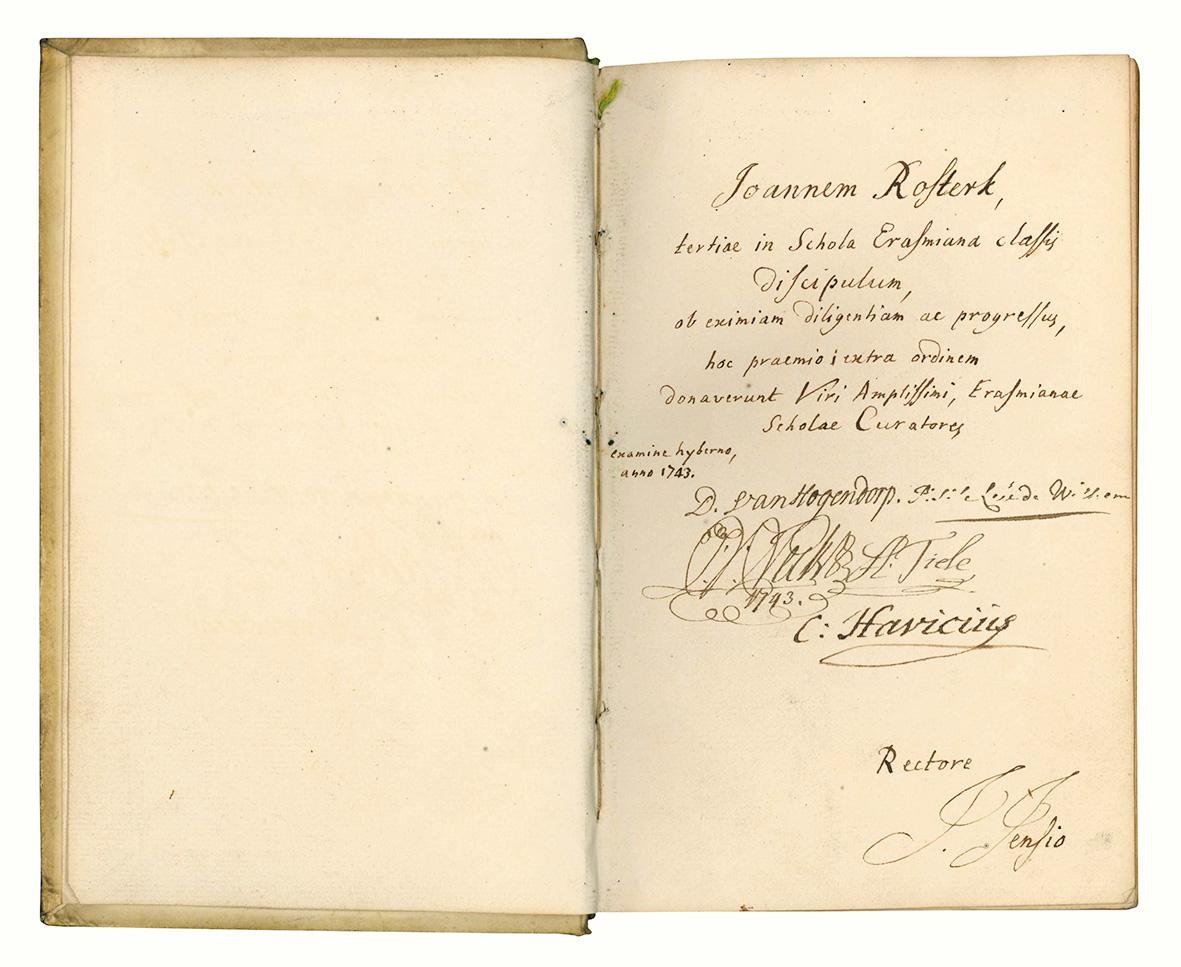 Joannem Rosterk,
tertiae in Schola Erasmiana classis
discipulum,
ob eximiam diligentiam ac progressus,
hoc praemio extra ordinem
donaverunt Viri Amplissimi, Erasmianae
Scholae Curatores
examine hyberno,
anno 1743.
D. van Hogendorp.
Tiele
1743.
C: Havicius
Rectore
J. Jensio